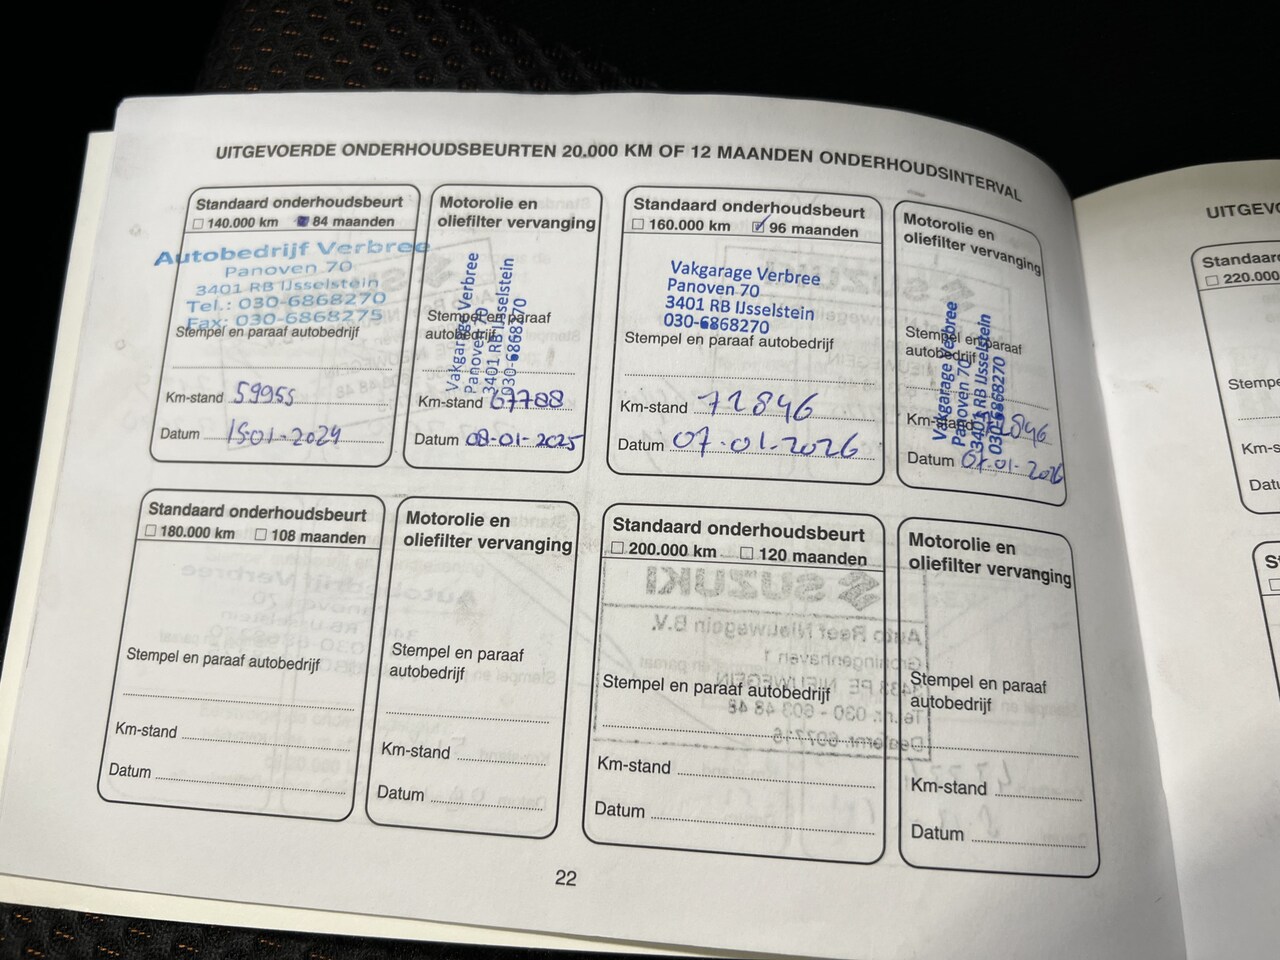 UITGEVOERDE ONDERHOUDSBEURTEN 20.000 KM OF 12 MAANDEN ONDERHOUDSINTERVAL
Standaard onderhoudsbeurt
140.000 km 84 maanden
Autobedrijf Verbree
Panoven 70
3401 RB IJsselstein
Tel.: 030-6868270
Fax: 030-6868275
Stempel en paraaf autobedrijf
Km-stand 59955
Datum 15-01-2024
Motorolie en
oliefilter vervanging
Vakgarage Verbree
Panoven 70
3401 RB IJsselstein
030-6868270
Stempel en paraaf
autobedrijf
Km-stand 67788
Datum 08-01-2025
Standaard onderhoudsbeurt
160.000 km 96 maanden
Vakgarage Verbree
Panoven 70
3401 RB IJsselstein
030-6868270
Stempel en paraaf autobedrijf
Km-stand 72846
Datum 07-01-2026
Motorolie en
oliefilter vervanging
Vakgarage Verbree
Panoven 70
3401 RB IJsselstein
030-6868270
Stempel en paraaf
autobedrijf
Km-stand 72846
Datum 07-01-2026
Standaard onderhoudsbeurt
180.000 km 108 maanden
Stempel en paraaf autobedrijf
Km-stand
Datum
Motorolie en
oliefilter vervanging
Stempel en paraaf
autobedrijf
Km-stand
Datum
Standaard onderhoudsbeurt
200.000 km 120 maanden
Stempel en paraaf autobedrijf
Km-stand
Datum
Motorolie en
oliefilter vervanging
Stempel en paraaf
autobedrijf
Km-stand
Datum
22
220.000